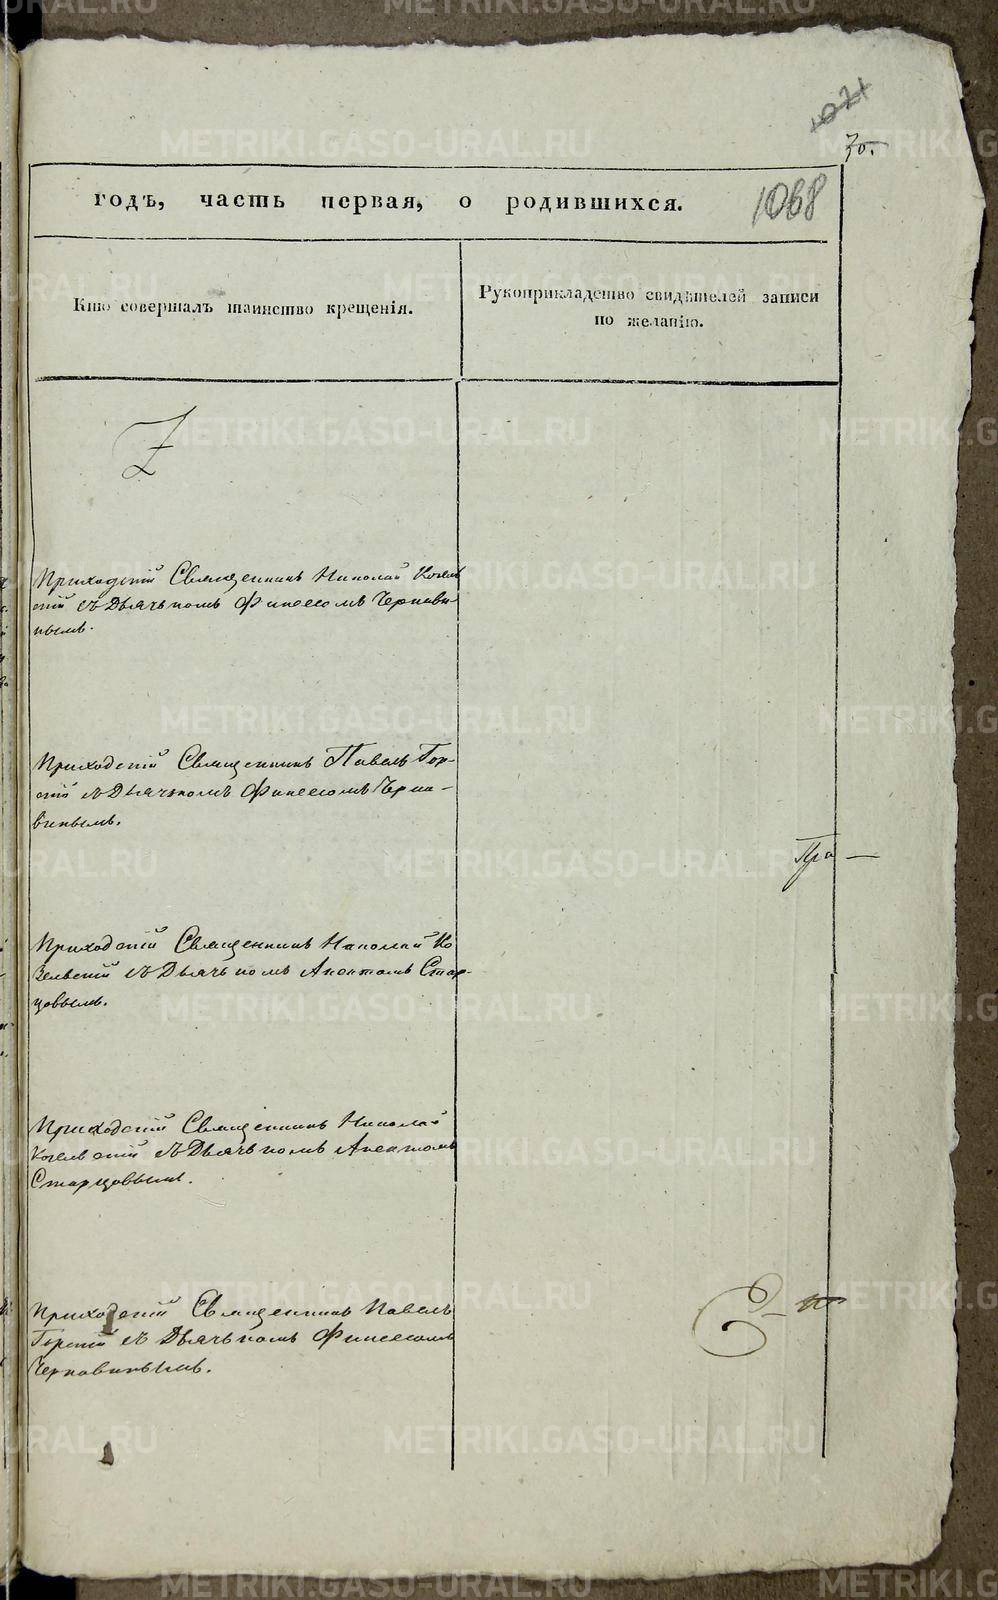 1071
70.
годъ, часть первая, о родившихся.
1068
Кто совершалъ таинство крещенія.
Рукоприкладство свидѣтелей записи
по желанію.
Приходскій Священникъ Николай Козель
скій съ Дьячькомъ Финеесомъ Чернави-
нымъ.
Приходскій Священникъ Павелъ Гор-
скій съ Дьячькомъ Финеесомъ Черна-
винымъ.
Пра —
Приходскій Священникъ Николай Ко
зельскій съ Дьячькомъ Аполломъ Стар-
цовымъ.
Приходскій Священникъ Николай
Козельскій съ Дьячькомъ
Старцовымъ.
Приходскій Священникъ Павелъ
Горскій съ Дьячькомъ Финеесомъ
Чернавинымъ.
METRIKI.GASO-URAL.RU